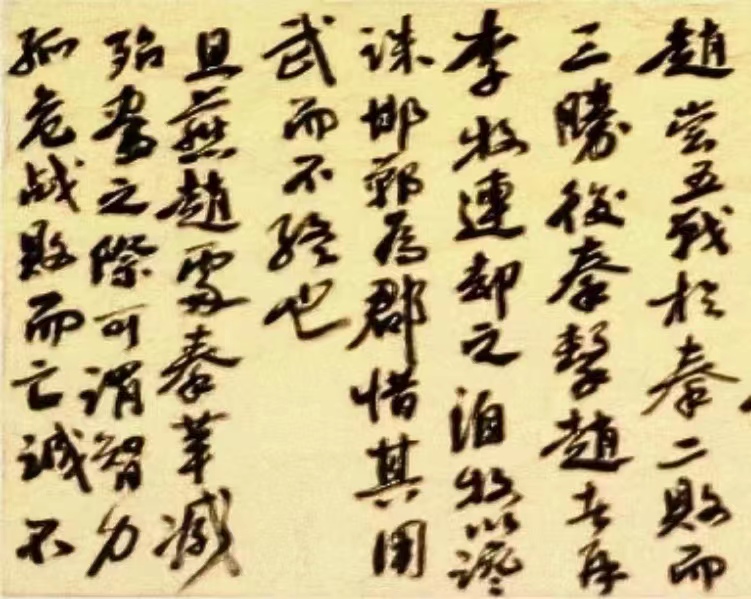 趙嘗五戰於秦二敗而
三勝後秦擊趙者再
李牧連却之洎牧以讒
誅邯鄲為郡惜其用
武而不終也
且燕趙處秦革滅
殆盡之際可謂智力
孤危战敗而亡誠不